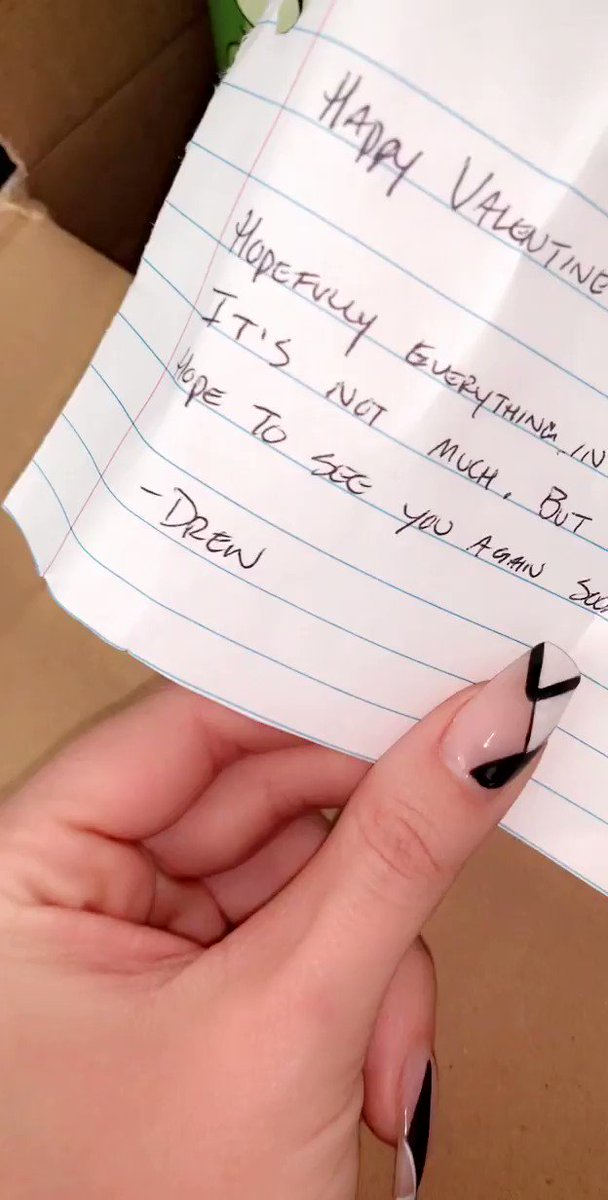 HAPPY VALENTINE
HOPEFULLY EVERYTHING IN
IT'S NOT MUCH, BUT
HOPE TO SEE YOU AGAIN
-DREW